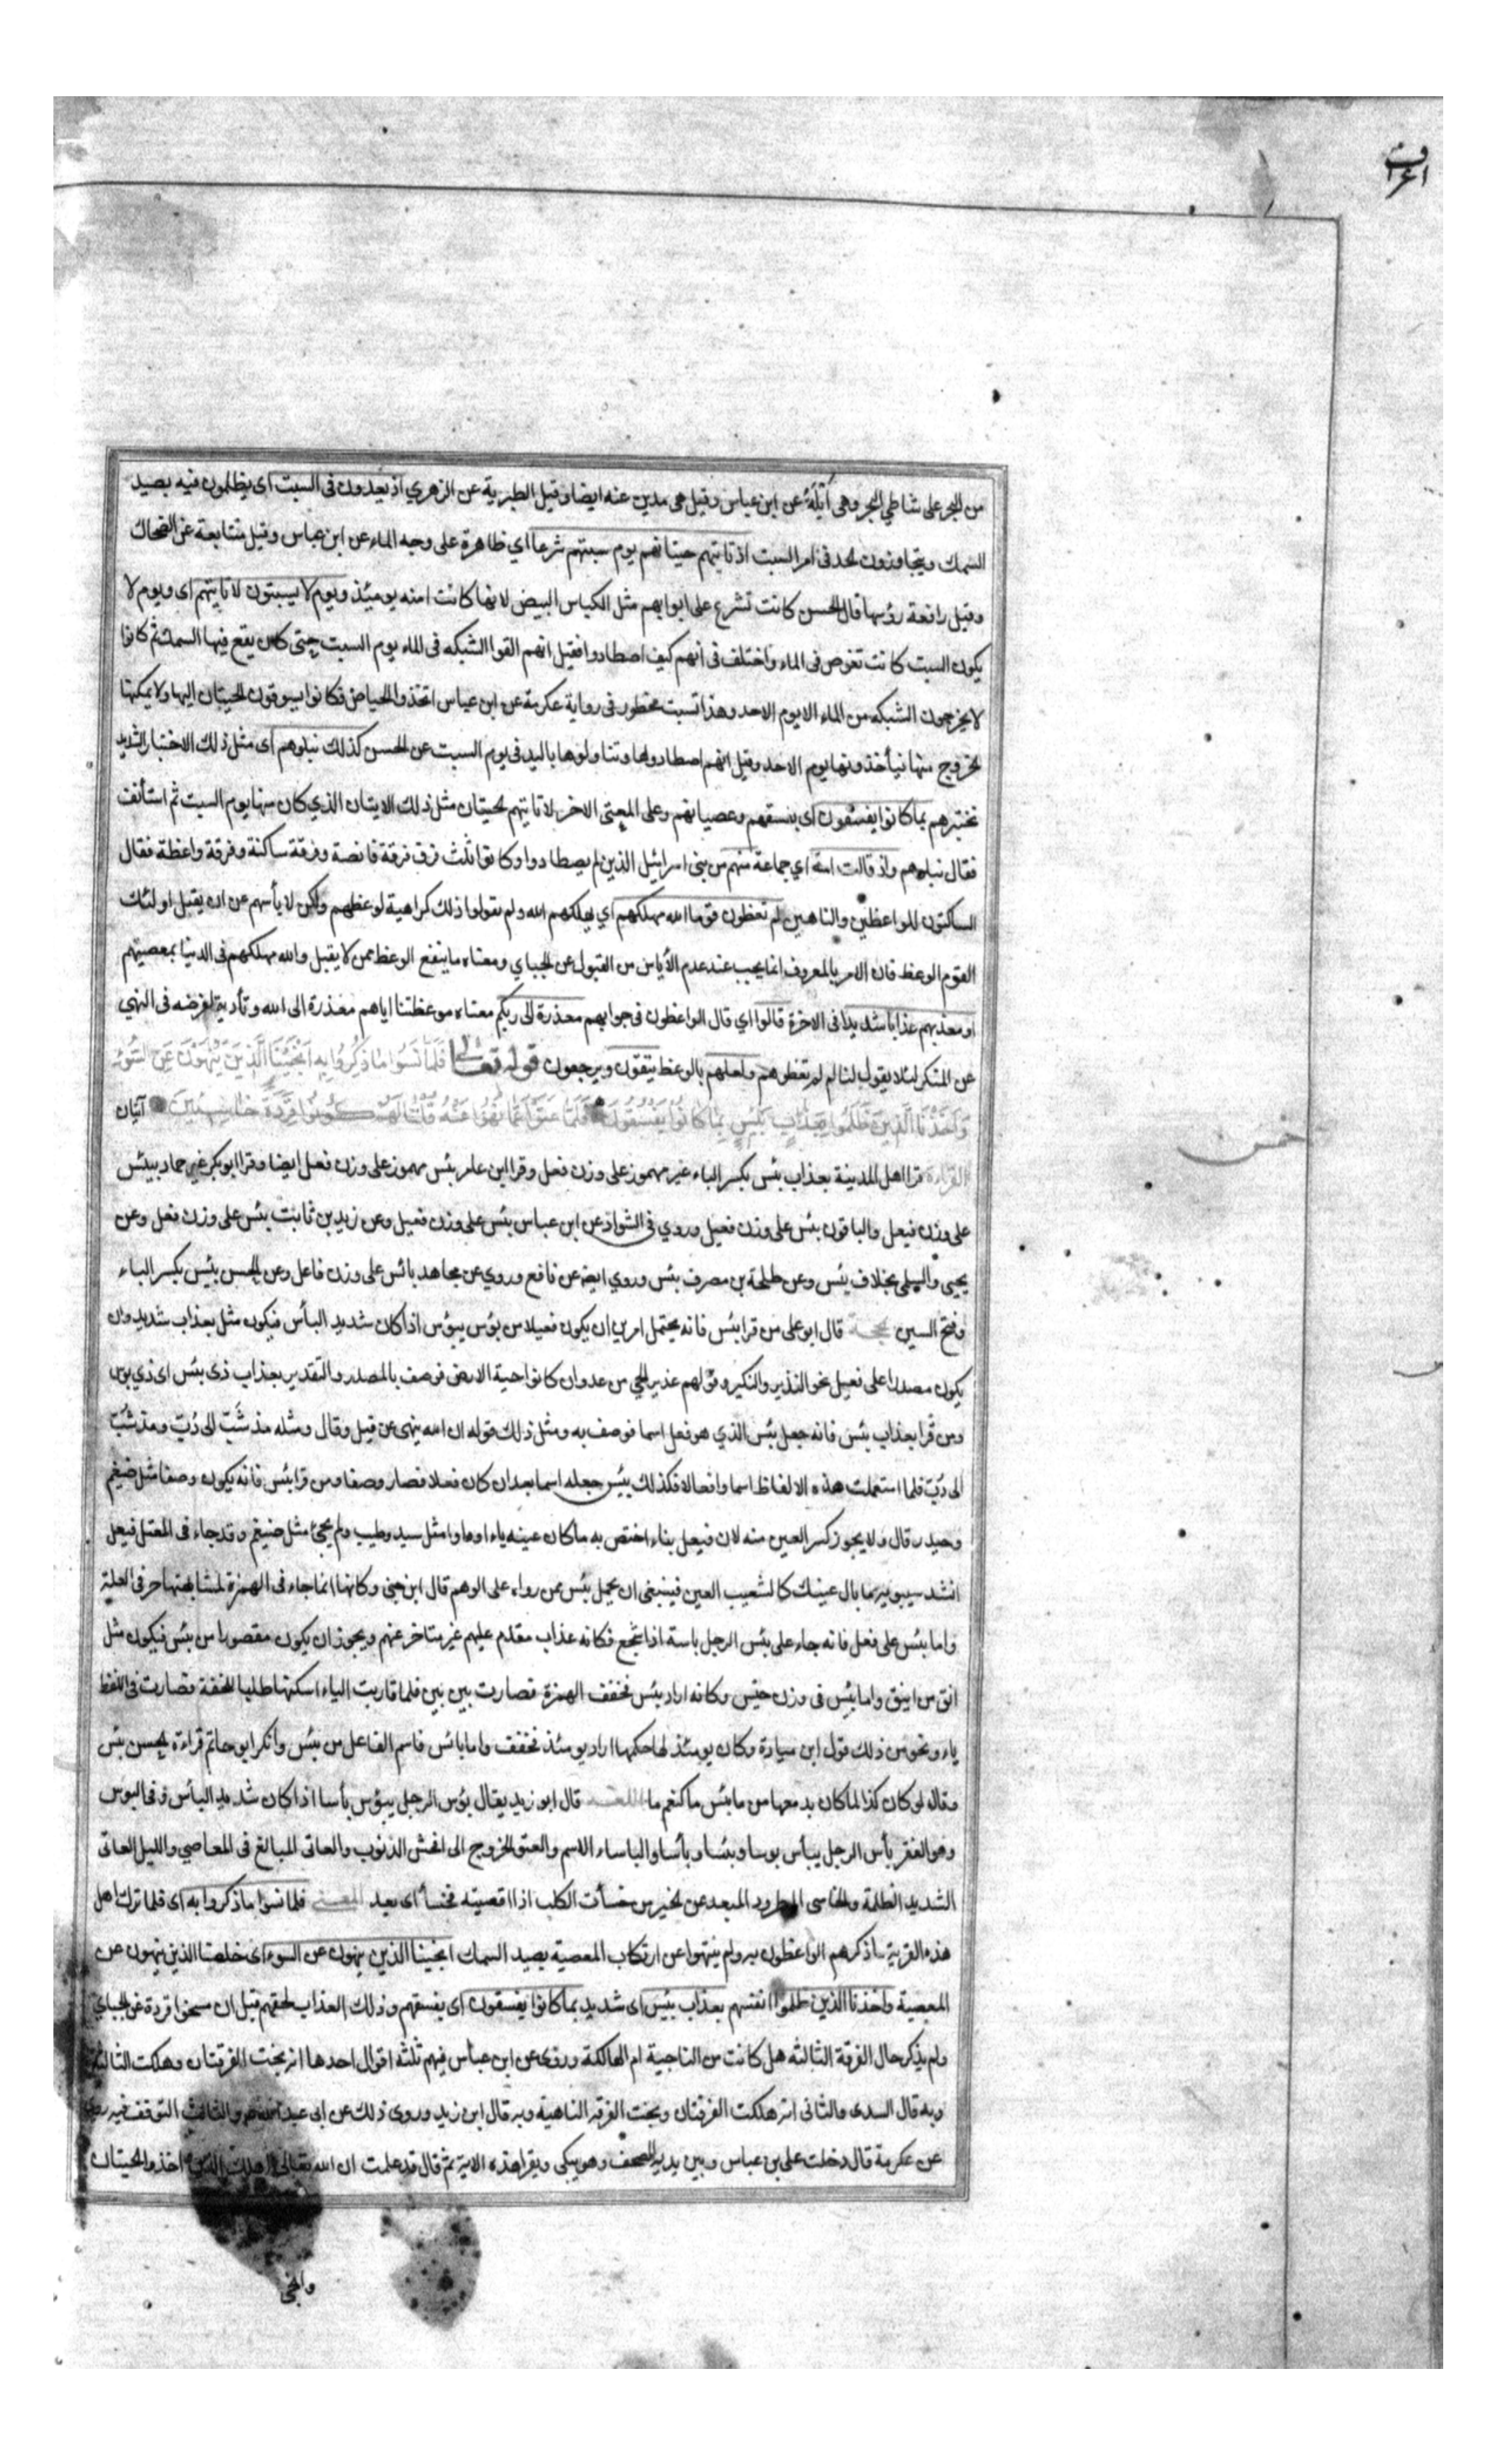 اعراف
من البحر على شاطئ البحر وهى اَيْلَةُ عن ابن عباس وقيل هى مدين عنه ايضا وقيل الطبرية عن الزهري اذ يعدون فى السبت اى يظلمون فيه بصيد
السمك ويتجاوزون الحد فى امر السبت اذ تاتيهم حيتانهم يوم سبتهم شرعا اي ظاهرة على وجه الماء عن ابن عباس وقيل متتابعة عن الضحاك
وقيل رافعة رؤسها قال الحسن كانت تشرع على ابوابهم مثل الكباس البيض لانها كانت امنه يومئذ ويوم لا يسبتون لا تاتيهم اى ويوم لا
يكون السبت كانت تغوص فى الماء واختلف فى انهم كيف اصطادوا فقيل انهم القوا الشبكه فى الماء يوم السبت حتى كان يقع فيها السمك ثم كانوا
لا يخرجون الشبكه من الماء الا يوم الاحد وهذا تسبت محظور فى رواية عكرمة عن ابن عباس اتخذوا الحياض فكانوا يسوقون الحيتان اليها ولا يمكنها
الخروج منها فيأخذونها يوم الاحد وقيل انهم اصطادوها وتناولوها باليد فى يوم السبت عن الحسن كذلك نبلوهم اى مثل ذلك الاختبار الشديد
نختبرهم بما كانوا يفسقون اى بفسقهم وعصيانهم وعلى المعنى الاخر لا تاتيهم الحيتان مثل ذلك الاتيان الذي كان منها يوم السبت ثم استأنف
فقال نبلوهم واذ قالت امة اي جماعة منهم من بنى اسرائيل الذين لم يصطادوا وكانوا ثلث فرق فرقة قانصة وفرقة ساكتة وفرقة واعظة فقال
الساكتون للواعظين والناهين لم تعظون قوما الله مهلكهم اي يهلكهم الله ولم يقولوا ذلك كراهية لوعظهم ولكن لا يأسهم عن ان يقبل اولئك
القوم الوعظ فان الامر بالمعروف انما يجب عند عدم الأياس من القبول عن الجباي ومعناه ما ينفع الوعظ ممن لا يقبل والله مهلكهم فى الدنيا بمعصيتهم
او معذبهم عذابا شديدا فى الاخرة قالوا اي قال الواعظون فى جوابهم معذرة الى ربكم معناه موعظتنا اياهم معذرة الى الله وتأدية لفرضه فى النهي
عن المنكر لئلا يقول لنا لم لم تعظوهم ولعلهم بالوعظ يتقون ويرجعون قوله تعالى فَلَمَّا نَسُوا مَا ذُكِّرُوا بِهِ اَنْجَيْنَا الَّذِينَ يَنْهَوْنَ عَنِ السُّوءِ
وَاَخَذْنَا الَّذِينَ ظَلَمُوا بِعَذَابٍ بَئِيسٍ بِمَا كَانُوا يَفْسُقُونَ فَلَمَّا عَتَوْا عَمَّا نُهُوا عَنْهُ قُلْنَا لَهُمْ كُونُوا قِرَدَةً خَاسِئِينَ آيتان
القراءة قرا اهل المدينة بعذاب بئس بكسر الباء غير مهموز على وزن فعل وقرا ابن عامر بئس مهموز على وزن فعل ايضا وقرا ابو بكر غير حماد بيئس
على وزن فيعل والباقون بئس على وزن فعيل وروي فى الشواذ عن ابن عباس بئس على وزن فعيل وعن زيد بن ثابت بئس على وزن فعل وعن
يحيى والسلمى بخلاف بئس وعن طلحة بن مصرف بئس وروي ايضا عن نافع وروي عن مجاهد بائس على وزن فاعل وعن الحسن بئيس بكسر الباء
وفتح السين الحجة قال ابو على من قرا بئس فانه يحتمل امرين ان يكون فعيلا من بؤس يبؤس اذا كان شديد البأس فيكون مثل بعذاب شديد وان
يكون مصدرا على فعيل نحو النذير والنكير وقولهم عذير الحي من عدوان كانوا حية الارض فوصف بالمصدر والتقدير بعذاب ذى بئس اى ذي بوس
ومن قرا بعذاب بئس فانه جعل بئس الذي هو فعل اسما فوصف به ومثل ذلك قوله ان الله ينهى عن قيل وقال ومثله مذ شَبَّ الى دُبّ ومذ شُبّ
الى دُبّ فلما استعملت هذه الالفاظ اسما وافعالا فكذلك بئس جعله اسما بعد ان كان فعلا فصار وصفا ومن قرا بئس فانه يكون وصفا مثل ضيغم
وحيدر قال ولا يجوز كسر العين منه لان فيعل بناء اختص به ما كان عينه ياء او واوا مثل سيد وطيب ولم يجئ مثل ضيغم وقد جاء فى المعتل فيعل
انشد سيبويه ما بال عينك كالشعيب العين فينبغى ان يحمل بئس ممن رواه على الوهم قال ابن جنى وكانها انما جاء فى الهمزة لمشابهتها حرفى العلة
واما بئس على فعل فانه جاء على بئس الرجل باسة اذا شجع فكانه عذاب مقدم عليهم غير متاخر عنهم ويجوز ان يكون مقصورا من بئس فيكون مثل
انق من انيق واما بئس فى وزن جيس وكانه اراد بئس فخفف الهمزة فصارت بين بين فلما قاربت الياء اسكنها طلبا للخفة فصارت فى اللفظ
ياء ونحو من ذلك قول ابن ميادة وكان يومئذ لها حكمها اراد يومئذ فخفف واما بائس فاسم الفاعل من بئس وانكر ابو حاتم قراءة الحسن بئس
وقال لو كان كذا لما كان بد معها من ما بئس ما كنعم ما اللغة قال ابو زيد يقال بؤس الرجل يبؤس بأسا اذا كان شديد البأس وفى البوس
وهو الفقر بأس الرجل يبأس بوسا وبئسا وبأسا والباساء الاسم والعتو الخروج الى افحش الذنوب والعاتى المبالغ فى المعاصي والليل العاتى
الشديد الظلمة والخاسى المطرود المبعد عن الخير من خسأت الكلب اذا اقصيته فخسأ اى بعد المعنى فلما نسوا ما ذكروا به اى فلما ترك اهل
هذه القرية ما ذكرهم الواعظون به ولم ينتهوا عن ارتكاب المعصية بصيد السمك انجينا الذين ينهون عن السوء اى خلصنا الذين ينهون عن
المعصية واخذنا الذين ظلموا انفسهم بعذاب بئيس اى شديد بما كانوا يفسقون اى بفسقهم وذلك العذاب لحقهم قبل ان مسخوا قردة عن الجباي
ولم يذكر حال الفرقة الثالثه هل كانت من الناجية ام الهالكة وروى عن ابن عباس فيهم ثلثه اقوال احدها انه نجت الفرقتان وهلكت الثالثة
وبه قال السدى والثانى انه هلكت الفرقتان ونجت الفرقه الناهية وبه قال ابن زيد وروى ذلك عن ابى عبد الله والثالث التوقف فيه روى
عن عكرمة قال دخلت على بن عباس وبين يديه المصحف وهو يبكى ويقرا هذه الاية ثم قال قد علمت ان الله تعالى اهلك الذين اخذوا الحيتان
وانجى